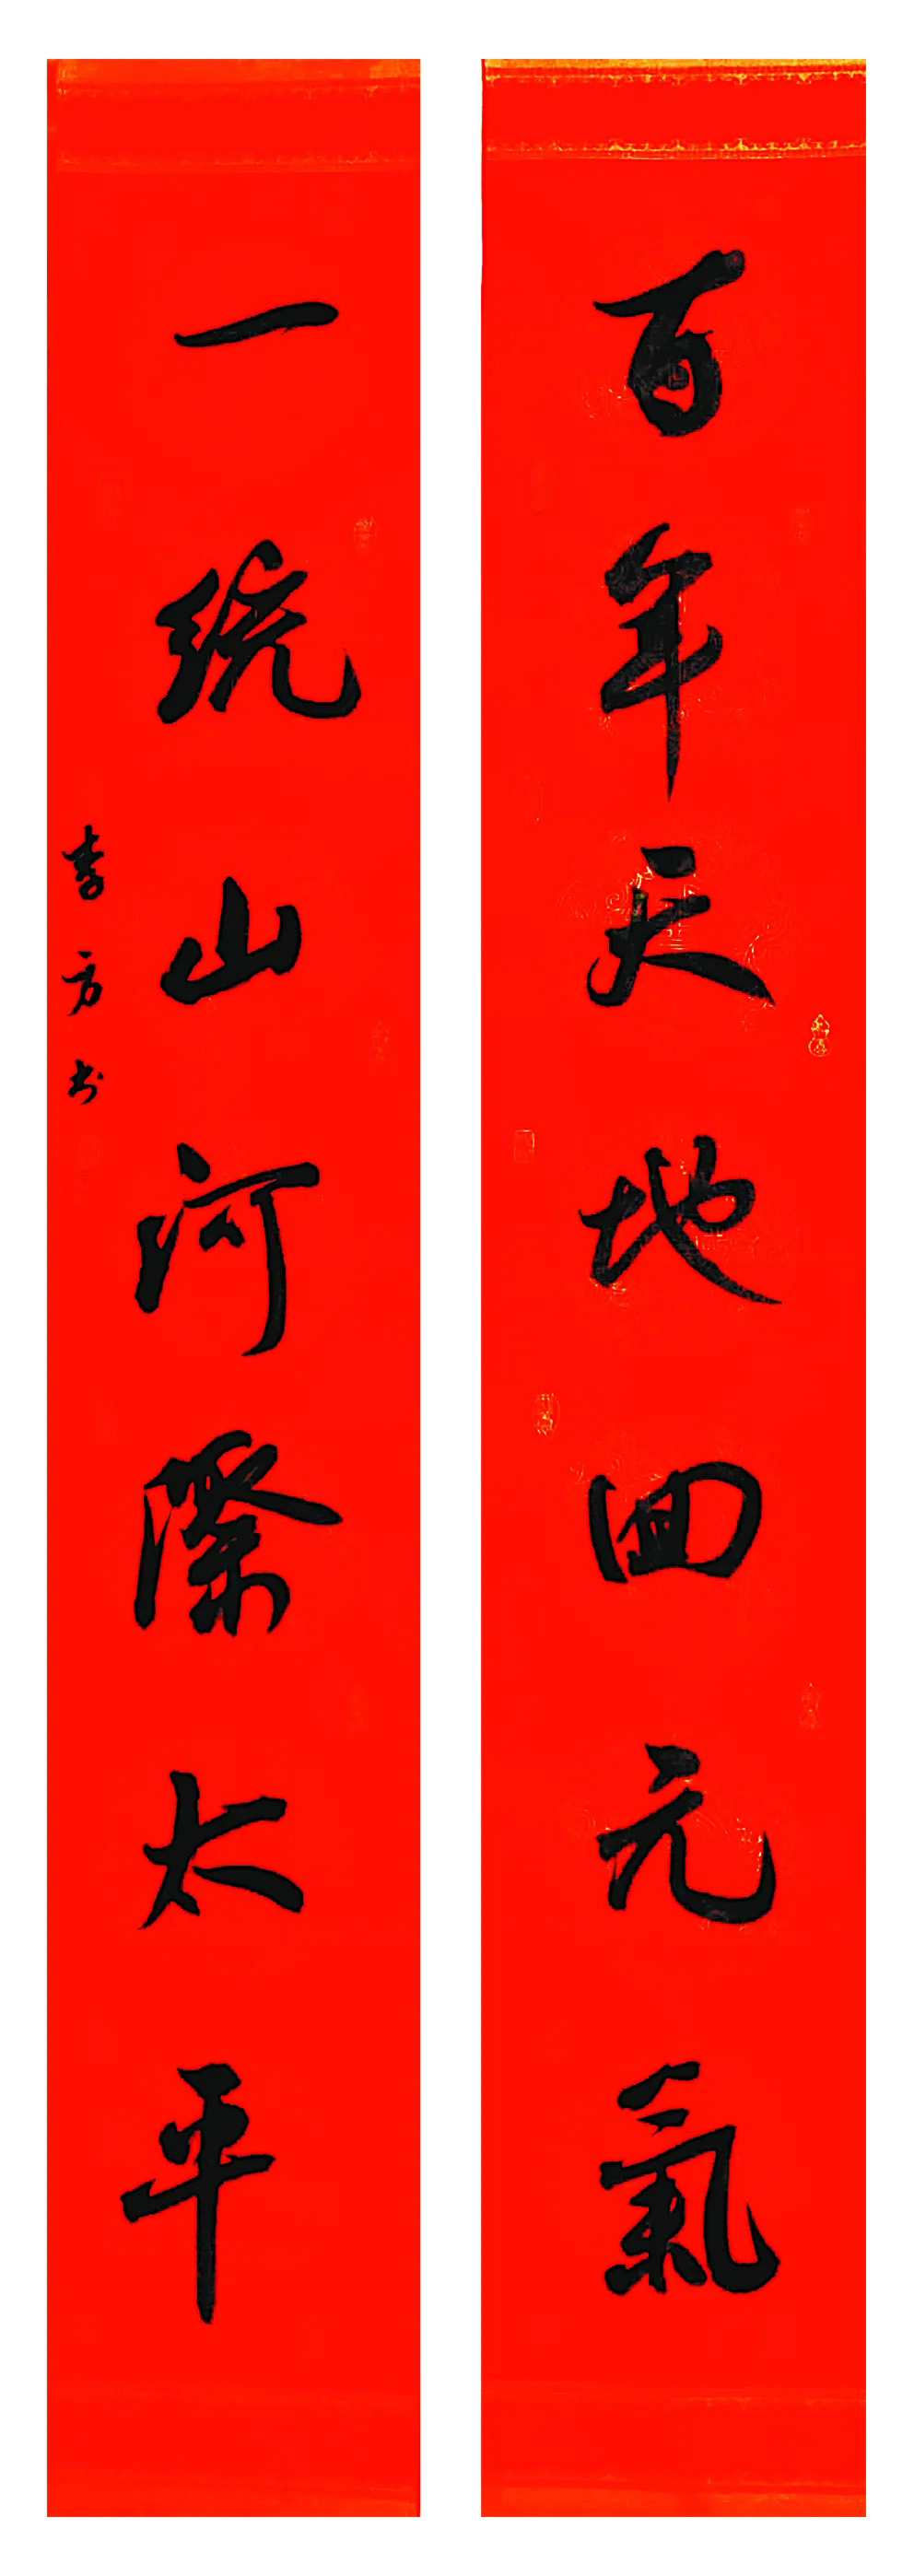 百年天地回元氣
一统山河際太平
李方书